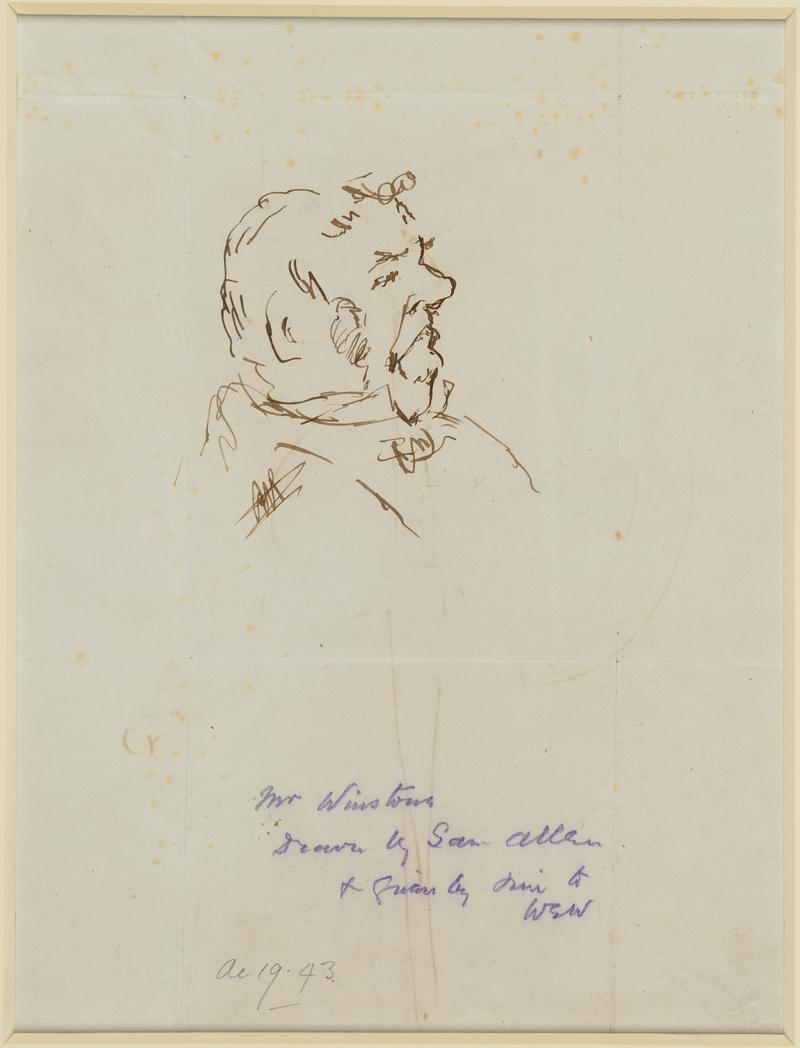 Mr Winstone
Drawn by Sam Allen
& given by him to
WSW
Ac 19.43.